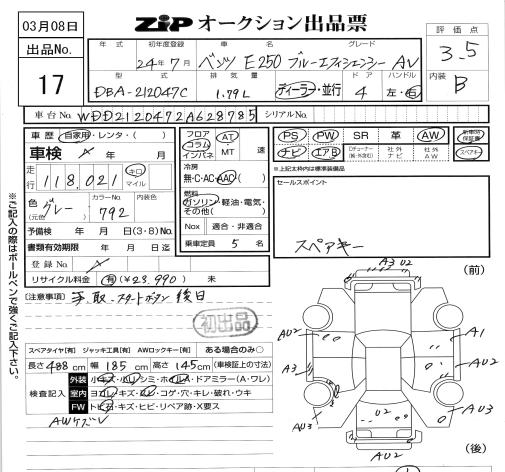 03月08日
ZIP オークション出品票
評価点
3.5
出品No.
17
年式 初年度登録 車名 グレード
24年7月 ベンツ E250 ブルーエフィシェンシー AV
型式 排気量 ドア ハンドル
DBA-212047C 1.79L ディーラー・並行 4 左・右
内装
B
車台No. WDD2120472A628785 シリアルNo.
車歴 自家用・レンタ・( )
車検 年 月
走行 118,021 キロ マイル
色(元色) グレー カラーNo. 792 内装色
予備検 年 月 日(3・8)No.
書類有効期限 年 月 日迄
登録No.
リサイクル料金 有(¥23,990) 未
フロア コラム インパネ AT・MT 速
冷房 無・C・AC・AAC( )
燃料 ガソリン・軽油・電気・その他( )
Nox 適合・非適合
乗車定員 5 名
PS PW SR 革 AW 新車時保証書
ナビ エアB 社外ナビ 社外AW スペアキー
※上記太枠内は標準装備品
セールスポイント
スペアキー
※ご記入の際はボールペンで強くご記入下さい。
注意事項 手、取、スタートボタン 後日
初出品
(前)
A3 U2
AU2
A1
A3
AU2
AU3
U2
AU3
AU2
(後)
スペアタイヤ[有] ジャッキ工具[有] AWロックキー[有] ある場合のみ○
長さ 488cm 幅 185cm 高さ 145cm (車検証上の寸法)
検査記入
外装 小キズ・小ヘコ・シミ・ホイルA・ドアミラー(A・ワレ)
室内 ヨゴレ・キズ・シミ・コゲ・穴・キレ・破れ・ウキ
FW トビ石・キズ・ヒビ・リペア跡・X要ス
AWケズレ